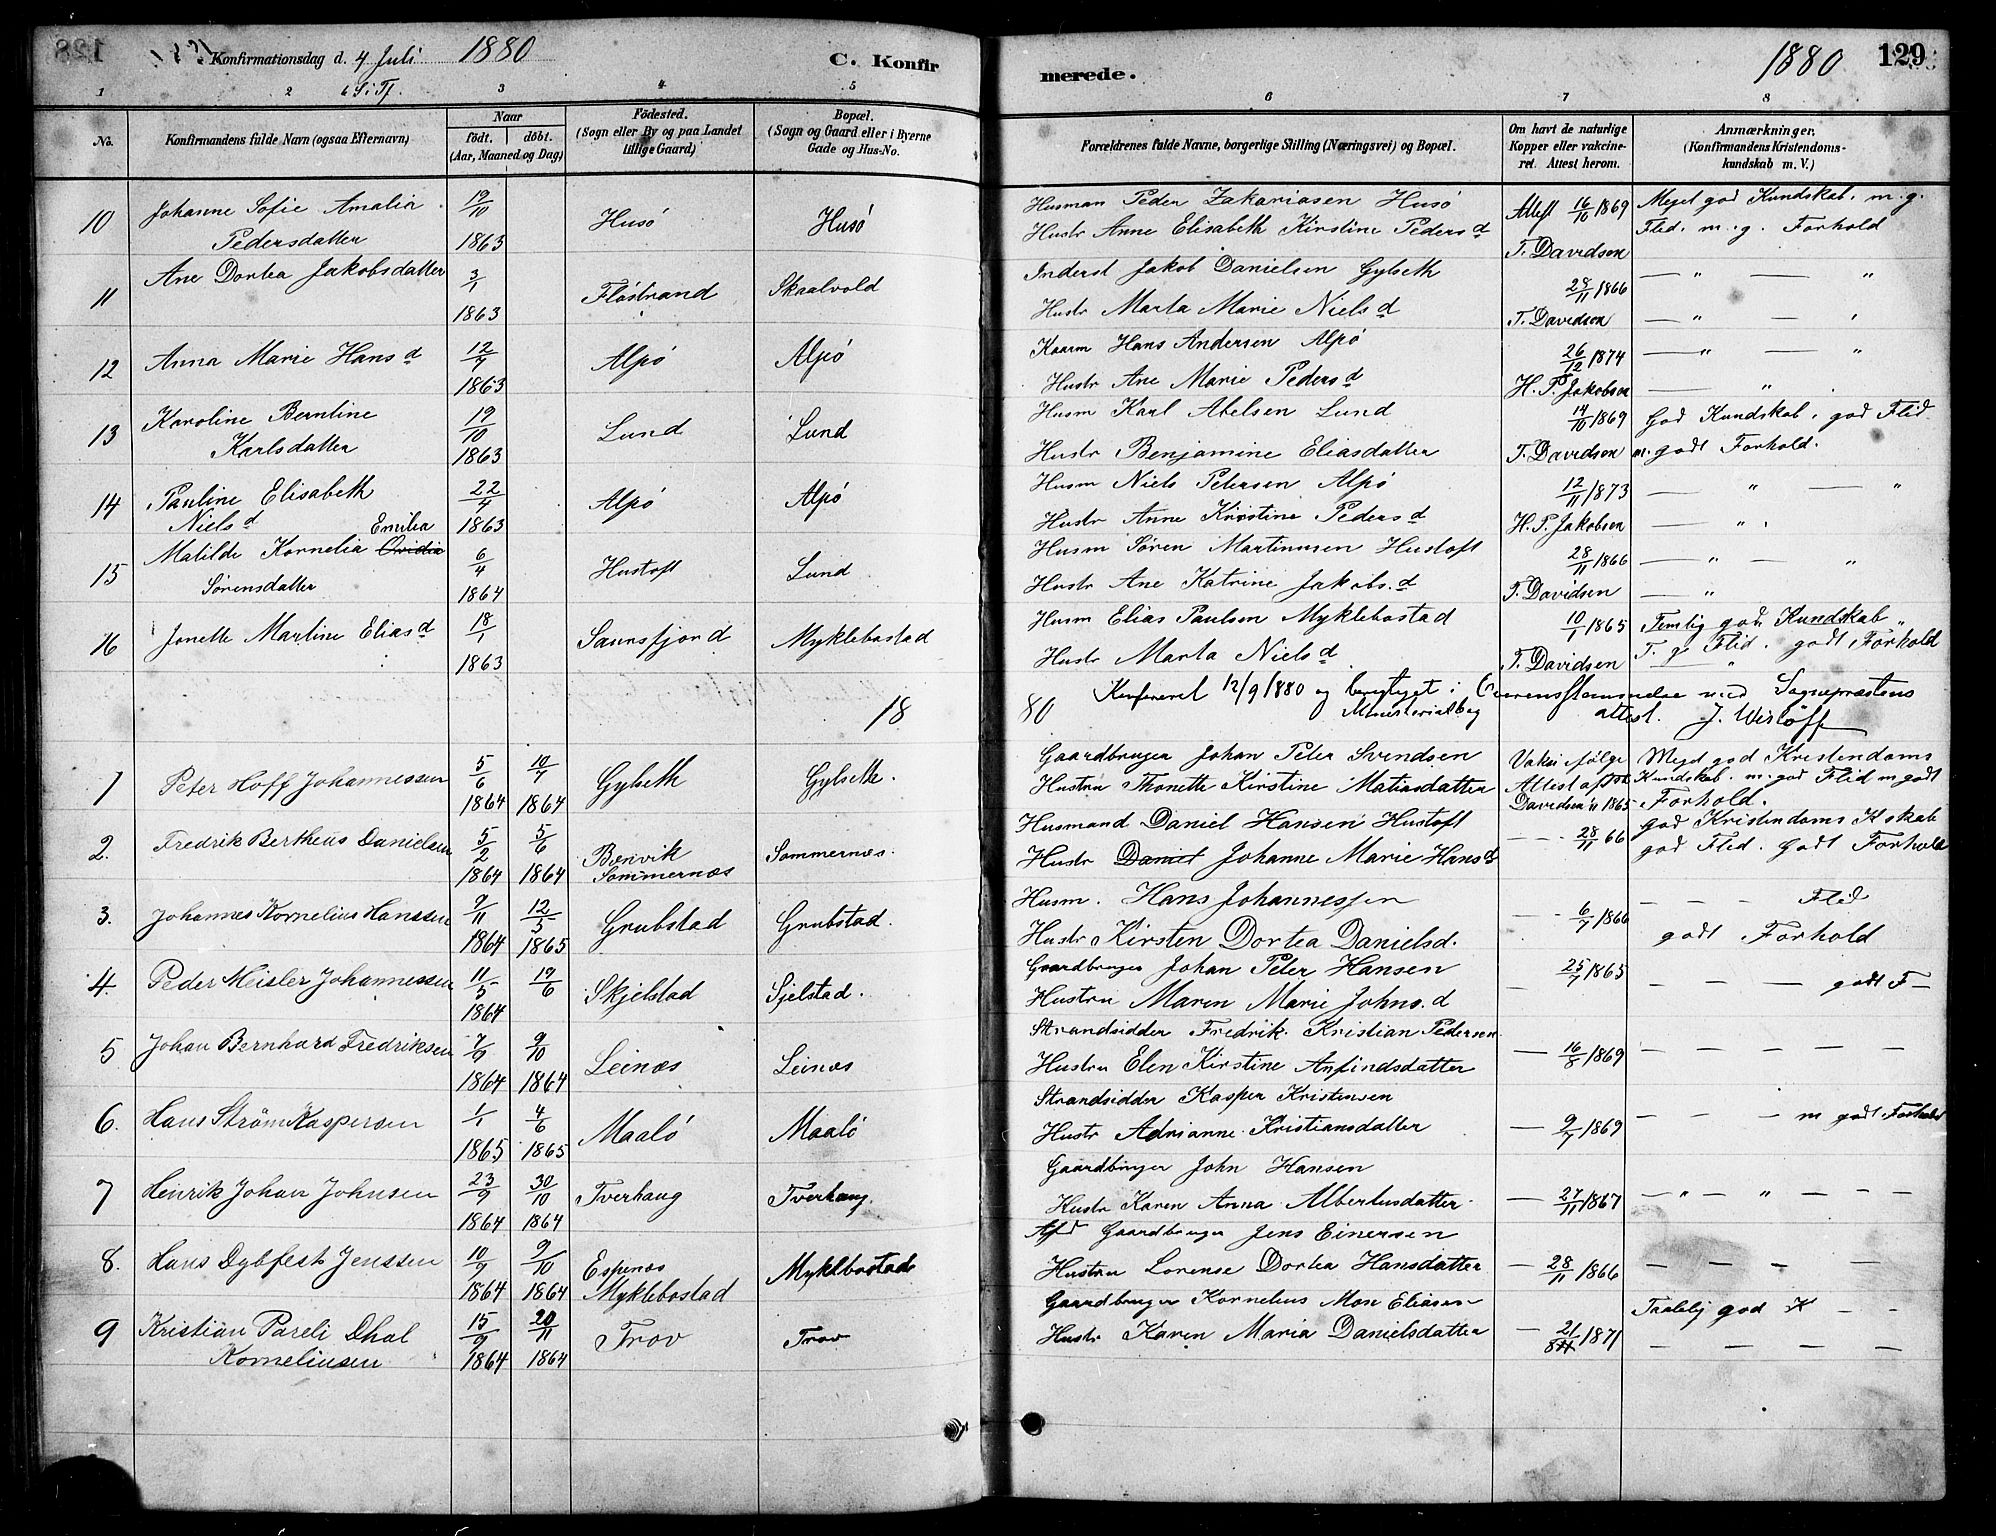 Konfirmationsdag d. 4 Juli 1880
6 S. i Tr.
C. Konfirmerede.
1880 129
1 2 3 4 5 6 7 8
No.
Konfirmandens fulde Navn (ogsaa Efternavn)
Naar
født. döbt.
(Aar, Maaned og Dag)
Födested.
(Sogn eller By og paa Landet
tillige Gaard)
Bopæl.
(Sogn og Gaard eller i Byerne
Gade og Hus-No.
Forældrenes fulde Navne, borgerlige Stilling (Næringsvei) og Bopæl.
Om havt de naturlige
Kopper eller vakcine-
ret. Attest herom.
Anmærkninger.
(Konfirmandens Kristendoms-
kundskab m. V.)
10 Johanne Sofie Amalia 19/10 Husö Husö Husman Peder Zakariasen Husö Attest 16/10 1869 Meget god Kundskab, m. g.
Pedersdatter 1863 Hustr Anne Elisabeth Kirstine Pedersd T. Davidson Flid. m. g. Forhold
11 Ane Dortea Jakobsdatter 3/1 Flöstrand Skaalvold Inderst Jakob Danielsen Gylseth 28/11 1866 — " — "
1863 Hustr Marta Marie Nielsd T. Davidson — " —
12 Anna Marie Hansd 12/7 Alpö Alpö Kaarm Hans Andersen Alpö 26/12 1874 — " — "
1863 Hustr Ane Marie Pedersd H. P. Jakobsen — "
13 Karoline Berntine 19/10 Lund Lund Husm Karl Abelsen Lund 14/10 1869 God Kundskab, god Flid
Karlsdatter 1863 Hustr Benjamine Eliasdatter T. Davidson m. godt Forhold.
14 Pauline Elisabeth 22/4 Alpö Alpö Husm Niels Petersen Alpö 12/11 1873 — " — "
Nielsd 1863 Hustr Anne Kirstine Pedersd H. P. Jakobsen — "
Emilia
15 Matilde Kornelia Ovidia 6/4 Hustoft Lund Husm Sören Martinusen Hustoft 28/11 1866 — " — "
Sörensdatter 1864 Hustr Ane Katrine Jakobs.d T. Davidsen — "
16 Jonette Martine Eliasd 18/1 Saursfjord Myklebostad Husm Elias Paulsen Myklebostad 10/1 1865 Temlig god Kundskab
1863 Hustr Marta Nielsd T. Davidsen T. g. Flid. godt Forhold
Konfereret 12/9 1880 og berigtiget i Overensstemmelse med Sognepræstens
Ministerialbog attest. J. Wislöff
18 80
1 Peter Hoff Johannessen 5/6 1864 10/7 1864 Gylseth Gylseth. Gaardbruger Johan Peter Svendsen Vaksi ifølge Meget god Kristendoms
Hustru Thonette Kirstine Matiasdatter Attest af Kundskab. m. god Flid m godt
Davidsen 1865 Forhold.
2. Fredrik Bertheus Danielsen 5/2 1864 5/6 1864 Bænvik Sommernæs Sommernæs. Husmand Daniel Hansen Hustoft 28/11 66 god Kristendoms Kskab
Hustr Daniel Johanne Marie Hansd god Flid. godt Forhold
3. Johannes Kornelius Hanssen 9/11 1864 12/3 1865 Grubstad Grubstad. Husm. Hans Johannessen — 6/7 1866 — — — Flid
Hustr Kirsten Dortea Danielsd. godt Forhold
4. Peder Meisler Johannessen 11/5 1864 19/6 Skjelstad Sjelstad. Gaardbruger Johan Peter Hansen 25/7 1865
Hustru Maren Marie Johns.d — — — godt F—
5 Johan Bernhard Fredriksen 7/9 1864 9/10 1864 Leinæs Leinæs Strandsidder Fredrik Kristian Pedersen
Hustru Elen Kirstine Anfindsdatter — 16/8 1869 — — — — —
6. Hans Ström Kaspersen 1/1 1865 4/6 1865 Maalö Maalö Strandsidder Kasper Kristensen
Hustr Adrianne Kristiansdatter — 9/7 1869 — — — m godt Forhold
7 Henrik Johan Johnsen 23/9 1864 30/10 1864 Tverhaug Tverhaug. Gaardbruger John Hansen
Hustr Karen Anna Albertusdatter — 27/11 1867 — " — " — — —
8. Hans Dybfest Jenssen 10/9 1864 9/10 1864 Espenæs Myklebostad Myklbostad Afd Gaardbruger Jens Einersen
Hustru Lorense Dortea Hansdatter — 28/11 1866 — — — —
9 Kristian Pareli Dhal 15/9 1864 20/11 1864 Trov Trov Gaardbruger Kornelius Mon Eliasen Taalelig god K — —
Korneliusen Hustr Karen Maria Danielsdatter — 21/8 1871 — — — — —